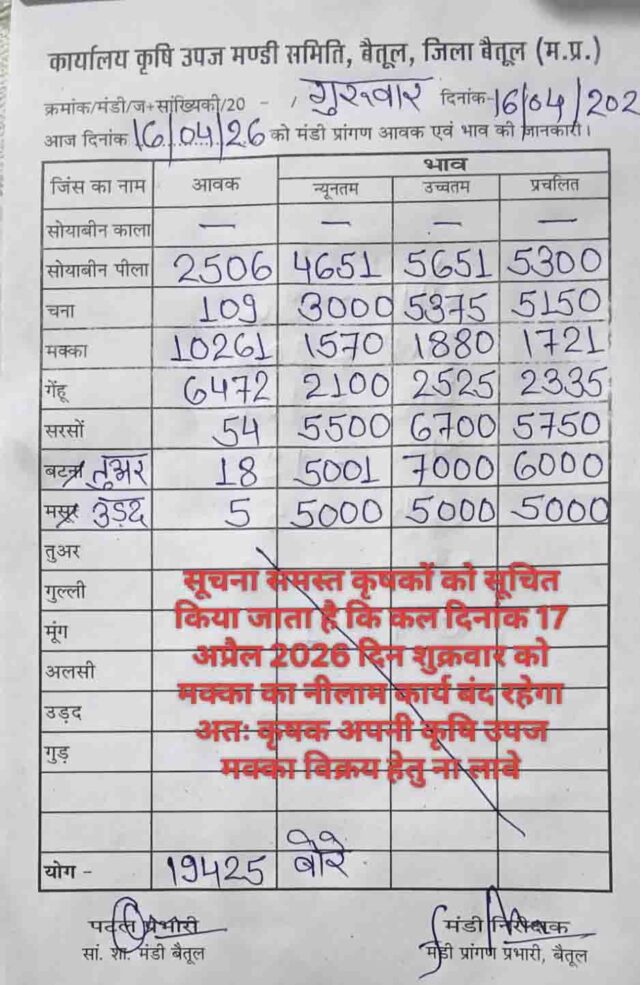 कार्यालय कृषि उपज मण्डी समिति, बैतूल, जिला बैतूल (म.प्र.)
क्रमांक/मंडी/ज+सांख्यिकी/20 - , गुरुवार दिनांक-16/04/202
आज दिनांक 16/04/26 को मंडी प्रांगण आवक एवं भाव की जानकारी।
भाव
जिंस का नाम आवक न्यूनतम उच्चतम प्रचलित
सोयाबीन काला — — — —
सोयाबीन पीला 2506 4651 5651 5300
चना 109 3000 5375 5150
मक्का 10261 1570 1880 1721
गेंहू 6472 2100 2525 2335
सरसों 54 5500 6700 5750
बटरा तुअर 18 5001 7000 6000
मसूर उड़द 5 5000 5000 5000
तुअर
गुल्ली
मूंग
अलसी
उड़द
गुड़
सूचना समस्त कृषकों को सूचित
किया जाता है कि कल दिनांक 17
अप्रैल 2026 दिन शुक्रवार को
मक्का का नीलाम कार्य बंद रहेगा
अतः कृषक अपनी कृषि उपज
मक्का विक्रय हेतु ना लाबे
योग - 19425 बोरे
प्रभारी मंडी निरीक्षक
सां. शा. मंडी बैतूल मंडी प्रांगण प्रभारी, बैतूल